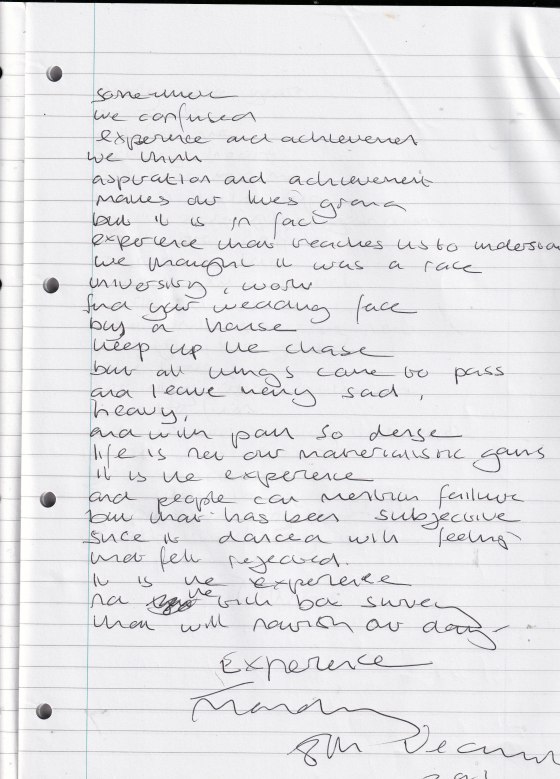 somewhere
we confused
experience and achievement
we think
aspiration and achievement
makes our lives grand
but it is in fact
experience that teaches us to understand
we thought it was a race
university, work
find your wedding face
buy a house
keep up the chase
but all things came to pass
and leave many sad,
heavy,
and with pain so dense
life is not our materialistic gains
it is the experience
and people can mention failure
but that has been subjective
since it danced with feelings
that felt rejected.
it is the experience
not the tick box survey
that will nourish our days
Experience
8th